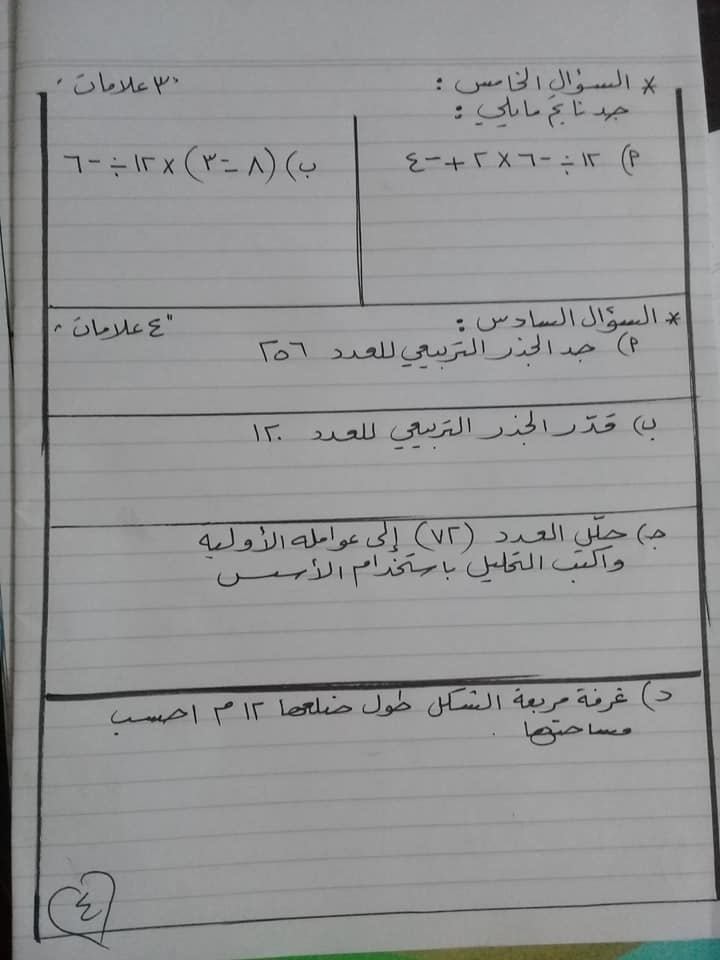 * السؤال الخامس : ٣٠ علامات ٠
جد ناتج مايلي :
أ) ١٢ ÷ -٦ × ٢ + -٤
ب) (٨ - ٣) × ١٢ ÷ -٦
* السؤال السادس : "٤ علامات ٠
أ) جد الجذر التربيعي للعدد ٢٥٦
ب) قدّر الجذر التربيعي للعدد ١٢٠
جـ) حلّل العدد (٧٢) إلى عوامله الأوليه
واكتب التحليل باستخدام الأسس
د) غرفة مربعة الشكل طول ضلعها ١٢ م احسب
مساحتها .
٤